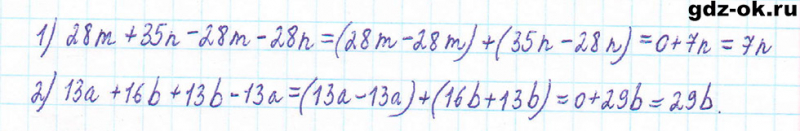 gdz-ok.ru
1) 28m + 35n - 28m - 28n = (28m - 28m) + (35n - 28n) = 0 + 7n = 7n
2) 13a + 16b + 13b - 13a = (13a - 13a) + (16b + 13b) = 0 + 29b = 29b.